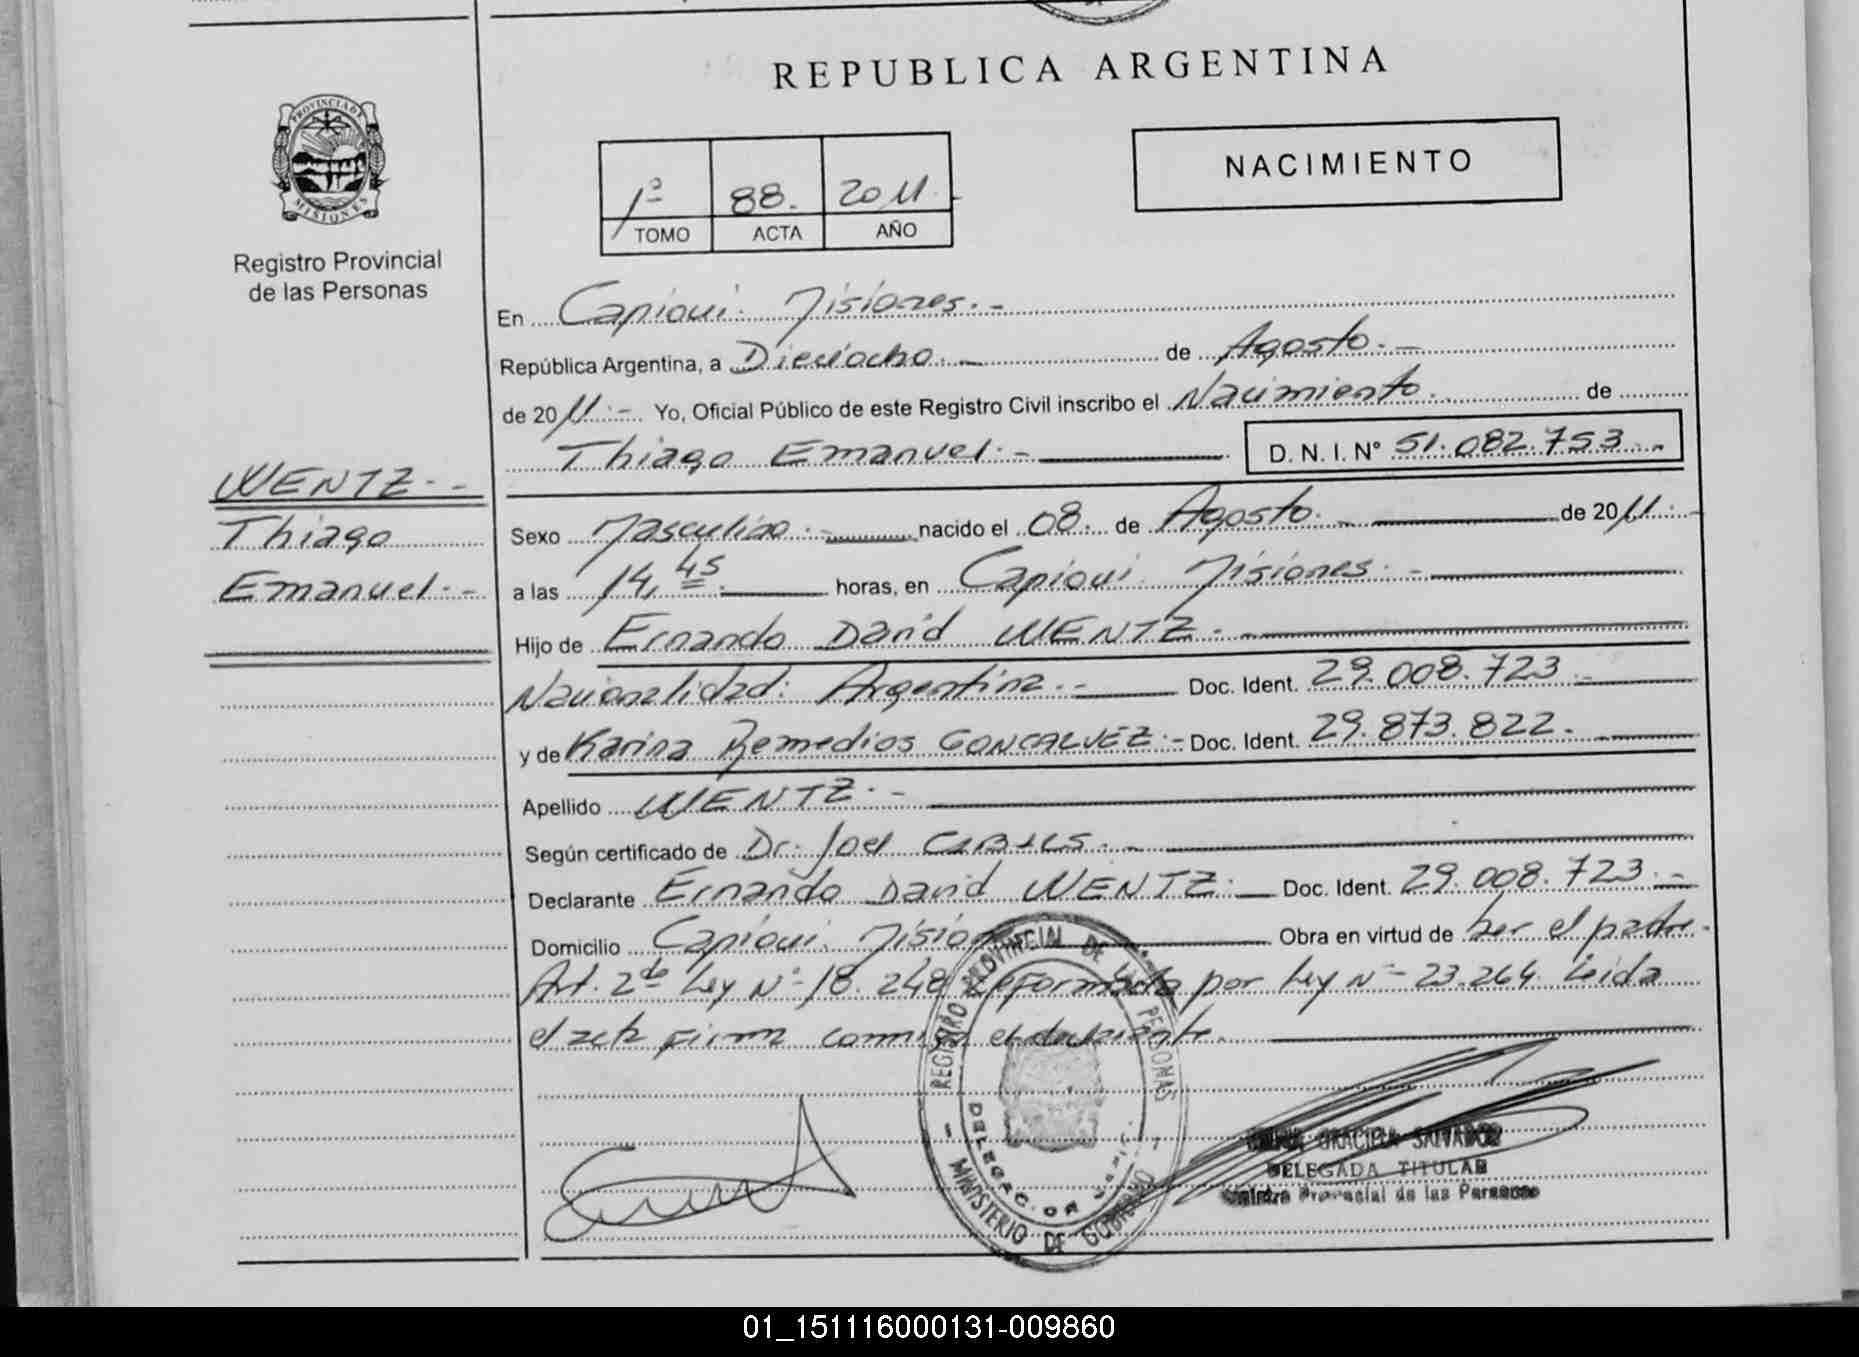 REPUBLICA ARGENTINA
PROVINCIA DE
MISIONES
Registro Provincial
de las Personas
1º 88. 2011.
TOMO ACTA AÑO
NACIMIENTO
En Capioui. Misiones.-
República Argentina, a Dieciocho.- de Agosto.-
de 2011.- Yo, Oficial Público de este Registro Civil inscribo el Nacimiento. de
Thiago Emanuel.- D. N. I. Nº 51.082.753.-
WENTZ.-
Thiago
Emanuel.-
Sexo Masculino.- nacido el 08. de Agosto.- de 2011.-
a las 14,45 horas, en Capioui. Misiones.-
Hijo de Ernando David WENTZ.-
Nacionalidad: Argentina.- Doc. Ident. 29.008.723.-
y de Karina Remedios GONCALVEZ.- Doc. Ident. 29.873.822.-
Apellido WENTZ.-
Según certificado de Dr. Joel
Declarante Ernando David WENTZ.- Doc. Ident. 29.008.723.-
Domicilio Capioui. Obra en virtud de ser el padre.
Art. 2do Ley Nº 18.248 reformada por Ley Nº 23.264. Leida
el acta firma conmigo el declarante.
REGISTRO PROVINCIAL DE LAS PERSONAS
MINISTERIO DE GOBIERNO
GRACIELA SALVADOR
DELEGADA TITULAR
Registro Provincial de las Personas
01_151116000131-009860